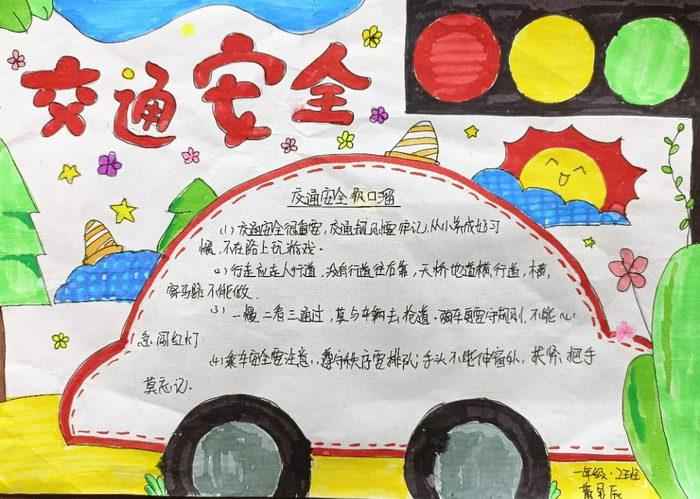 交通安全
交通安全歌口溜
(1)交通安全很重要,交通规则要牢记,从小养成好习
惯,不在路上玩游戏。
(2)行走应走人行道,没有行道往右靠,天桥地道横行道,横
穿马路不能做.
(3)一慢二看三通过,莫与车辆去抢道。骑车更要守规则,不能心
急闯红灯
(4)乘车安全要注意,遵守秩序要排队;手头不能伸窗外,扶紧把手
莫忘记.
一年级·2班